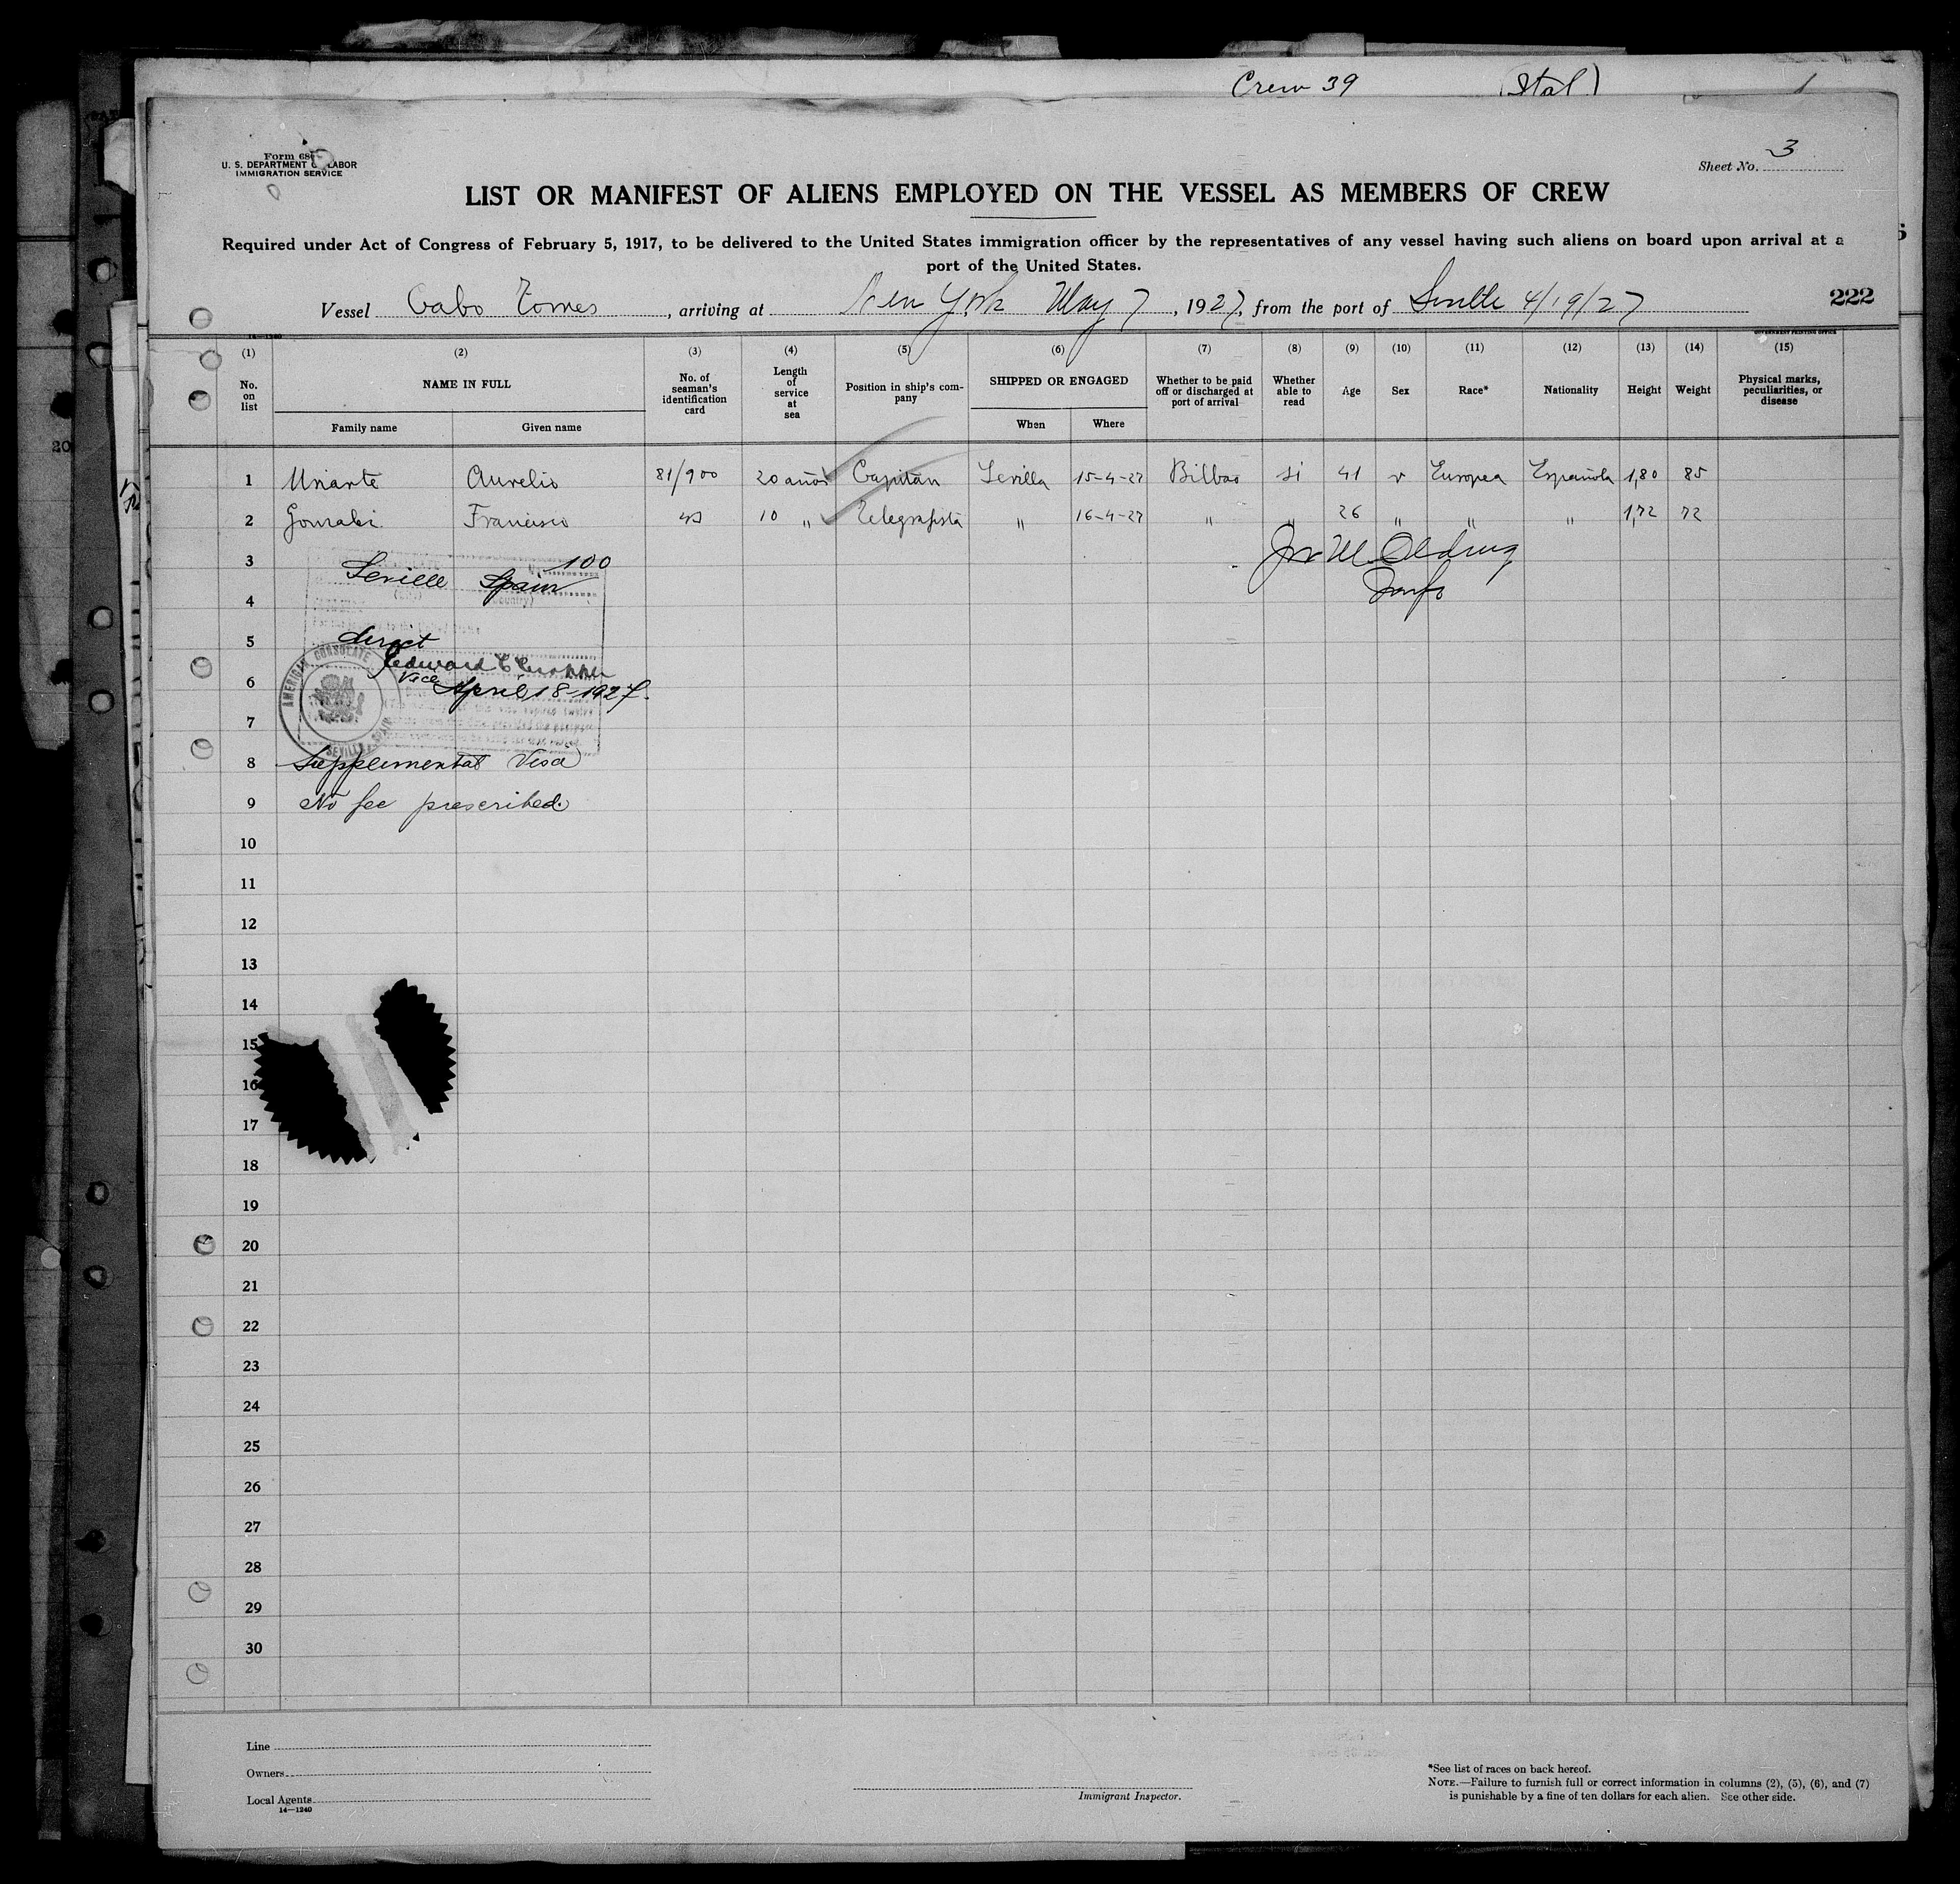 Crew 39
Form 68
U. S. DEPARTMENT OF LABOR
IMMIGRATION SERVICE
Sheet No. 3
LIST OR MANIFEST OF ALIENS EMPLOYED ON THE VESSEL AS MEMBERS OF CREW
Required under Act of Congress of February 5, 1917, to be delivered to the United States immigration officer by the representatives of any vessel having such aliens on board upon arrival at a
port of the United States.
Vessel Cabo Torres, arriving at New York May 7, 1927, from the port of Seville 4/19/27
222
14—1240
GOVERNMENT PRINTING OFFICE
(1) (2) (3) (4) (5) (6) (7) (8) (9) (10) (11) (12) (13) (14) (15)
No. on list NAME IN FULL No. of seaman's identification card Length of service at sea Position in ship's company SHIPPED OR ENGAGED Whether to be paid off or discharged at port of arrival Whether able to read Age Sex Race* Nationality Height Weight Physical marks, peculiarities, or disease
Family name Given name When Where
1 Uriarte Aurelio 81/900 20 años Capitán Sevilla 15-4-27 Bilbao si 41 v Europea Española 1,80 85
2 Francisco 10 " Telegrafista " 16-4-27 " " 26 " " " 1,72 72
3 Seville Spain 100
4
5 direct
Edward
6 Vice April 18-1927.
AMERICAN CONSULATE
SEVILLE, SPAIN
7
8 Supplemental Visa
9 No fee prescribed.
10
11
12
13
14
15
16
17
18
19
20
21
22
23
24
25
26
27
28
29
30
Line
Owners
Local Agents
14—1240
Immigrant Inspector.
*See list of races on back hereof.
NOTE.—Failure to furnish full or correct information in columns (2), (5), (6), and (7)
is punishable by a fine of ten dollars for each alien. See other side.